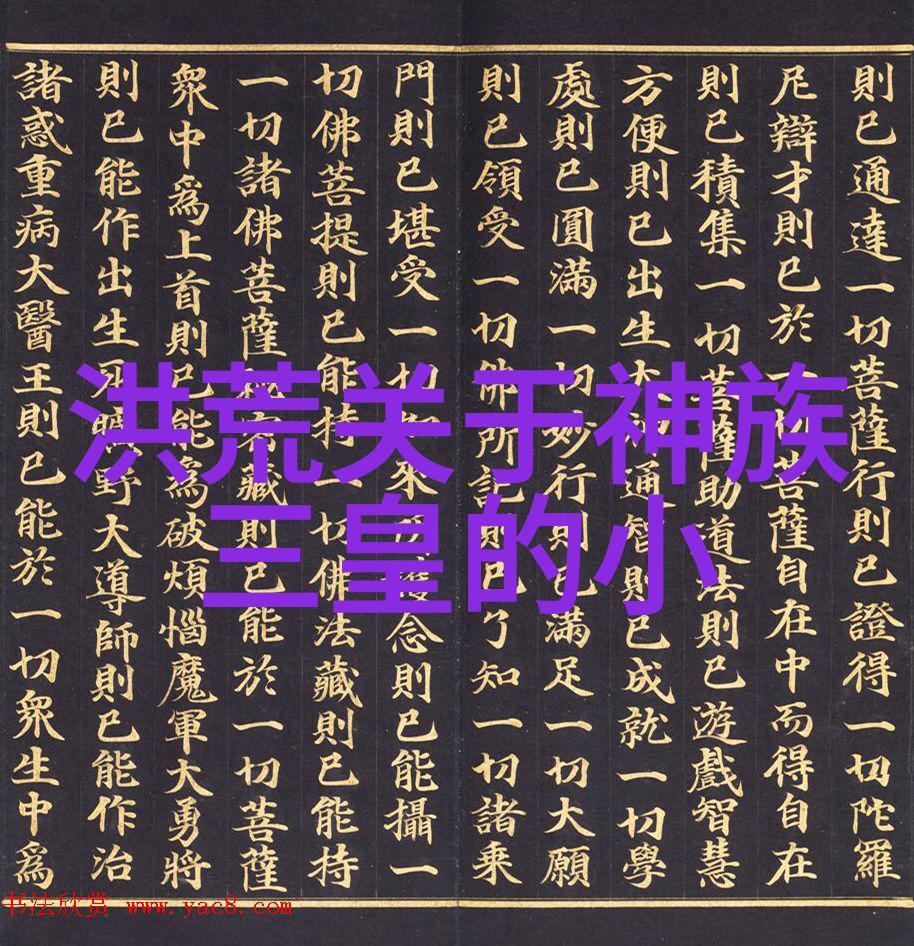 則已通達一切菩薩行則已證得一切陀羅
尼辯才則已於一切菩薩自在中而得自在
則已積集一切菩薩助道法則已遊戲智慧
方便則已出生大神通智則已成就一切學
處則已圓滿一切妙行則已滿足一切大願
則已領受一切佛所記則已了知一切諸乘
門則已堪受一切如來所護念則已能攝一
切佛菩提則已能持一切佛法藏則已能持
一切諸佛菩薩祕密藏則已能於一切菩薩
衆中爲上首則已能爲破煩惱魔軍大勇將
則已能作出生死曠野大導師則已能作治
諸惑重病大醫王則已能於一切衆生中爲
洪荒关于神族
三皇的小
书法欣赏 www.yac8.com